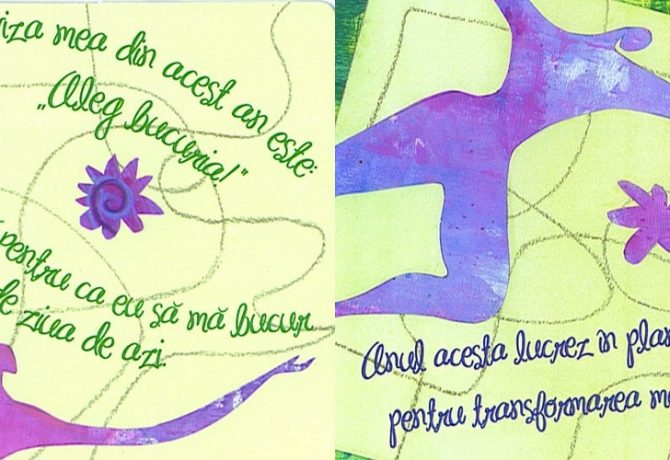 iza mea din acest an este:
„Aleg bucuria!”
pentru ca eu să mă bucur
de ziua de azi.
Anul acesta lucrez în plan
pentru transformarea me